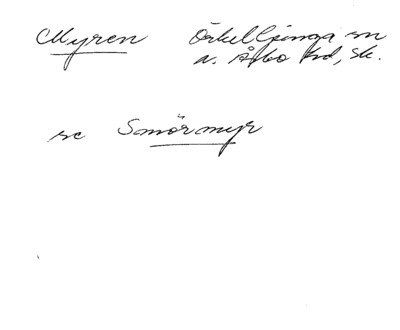 Myren Örkelljunga sn
n. Åsbo hd, Sk.
se Smörmyr